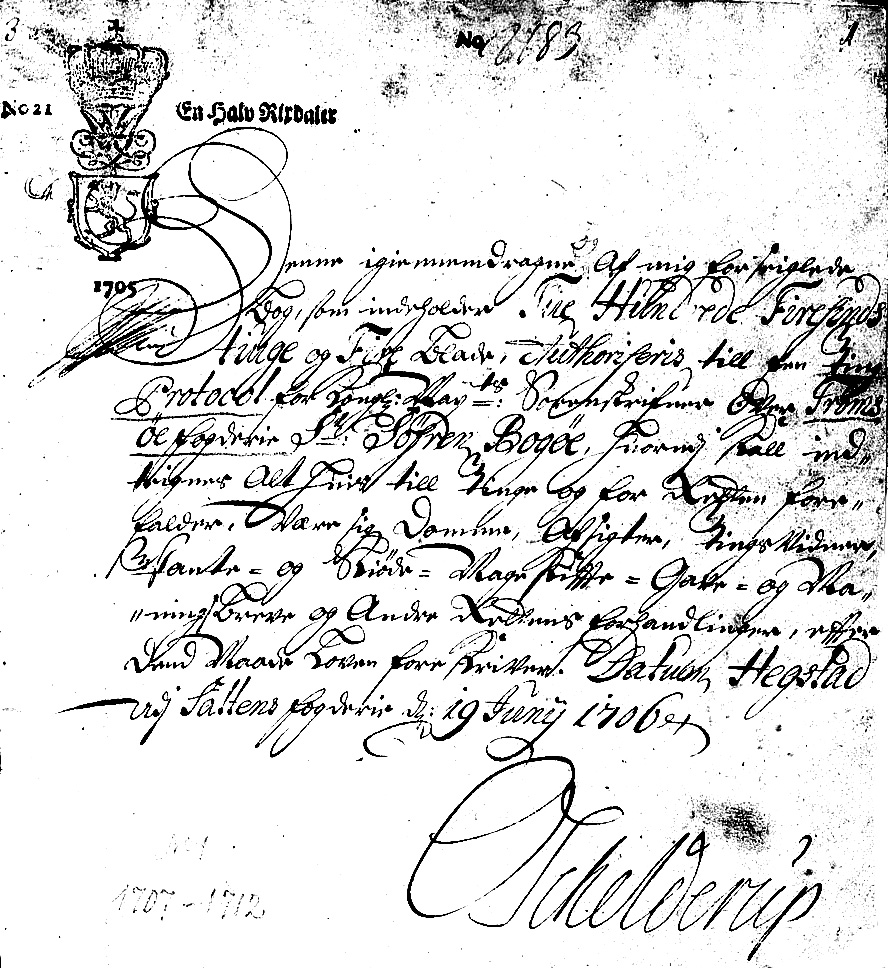 3 No 2783 1
No 21 En Halv Rixdaler
1705
Denne igiennemdragne og Af mig forseiglede
Bog, som indeholder Tue Hundrede Firesinds
tiuge og Fire Blade, Authoriseris till een Ting
Protocol for Kongl: May:ts: Sorenskrifver Over Troms
öe fogderie Sr: Söfren Bogöe, huorudj skall ind„
teignes Alt huis till Tinge og for Retten fore„
falder, Være sig Domme, Afsigter, tingsVidner,
Pante= og Skiöde= Mageskifte= Gave= og Ma„
„nings Breve og Andre Rettens forhandlinger, effter
dend Maade Loven foreskriver. Datum Hegstad
udj Saltens fogderie d: 19 Junij 1706
Schelderup
No 1
1707 - 1712